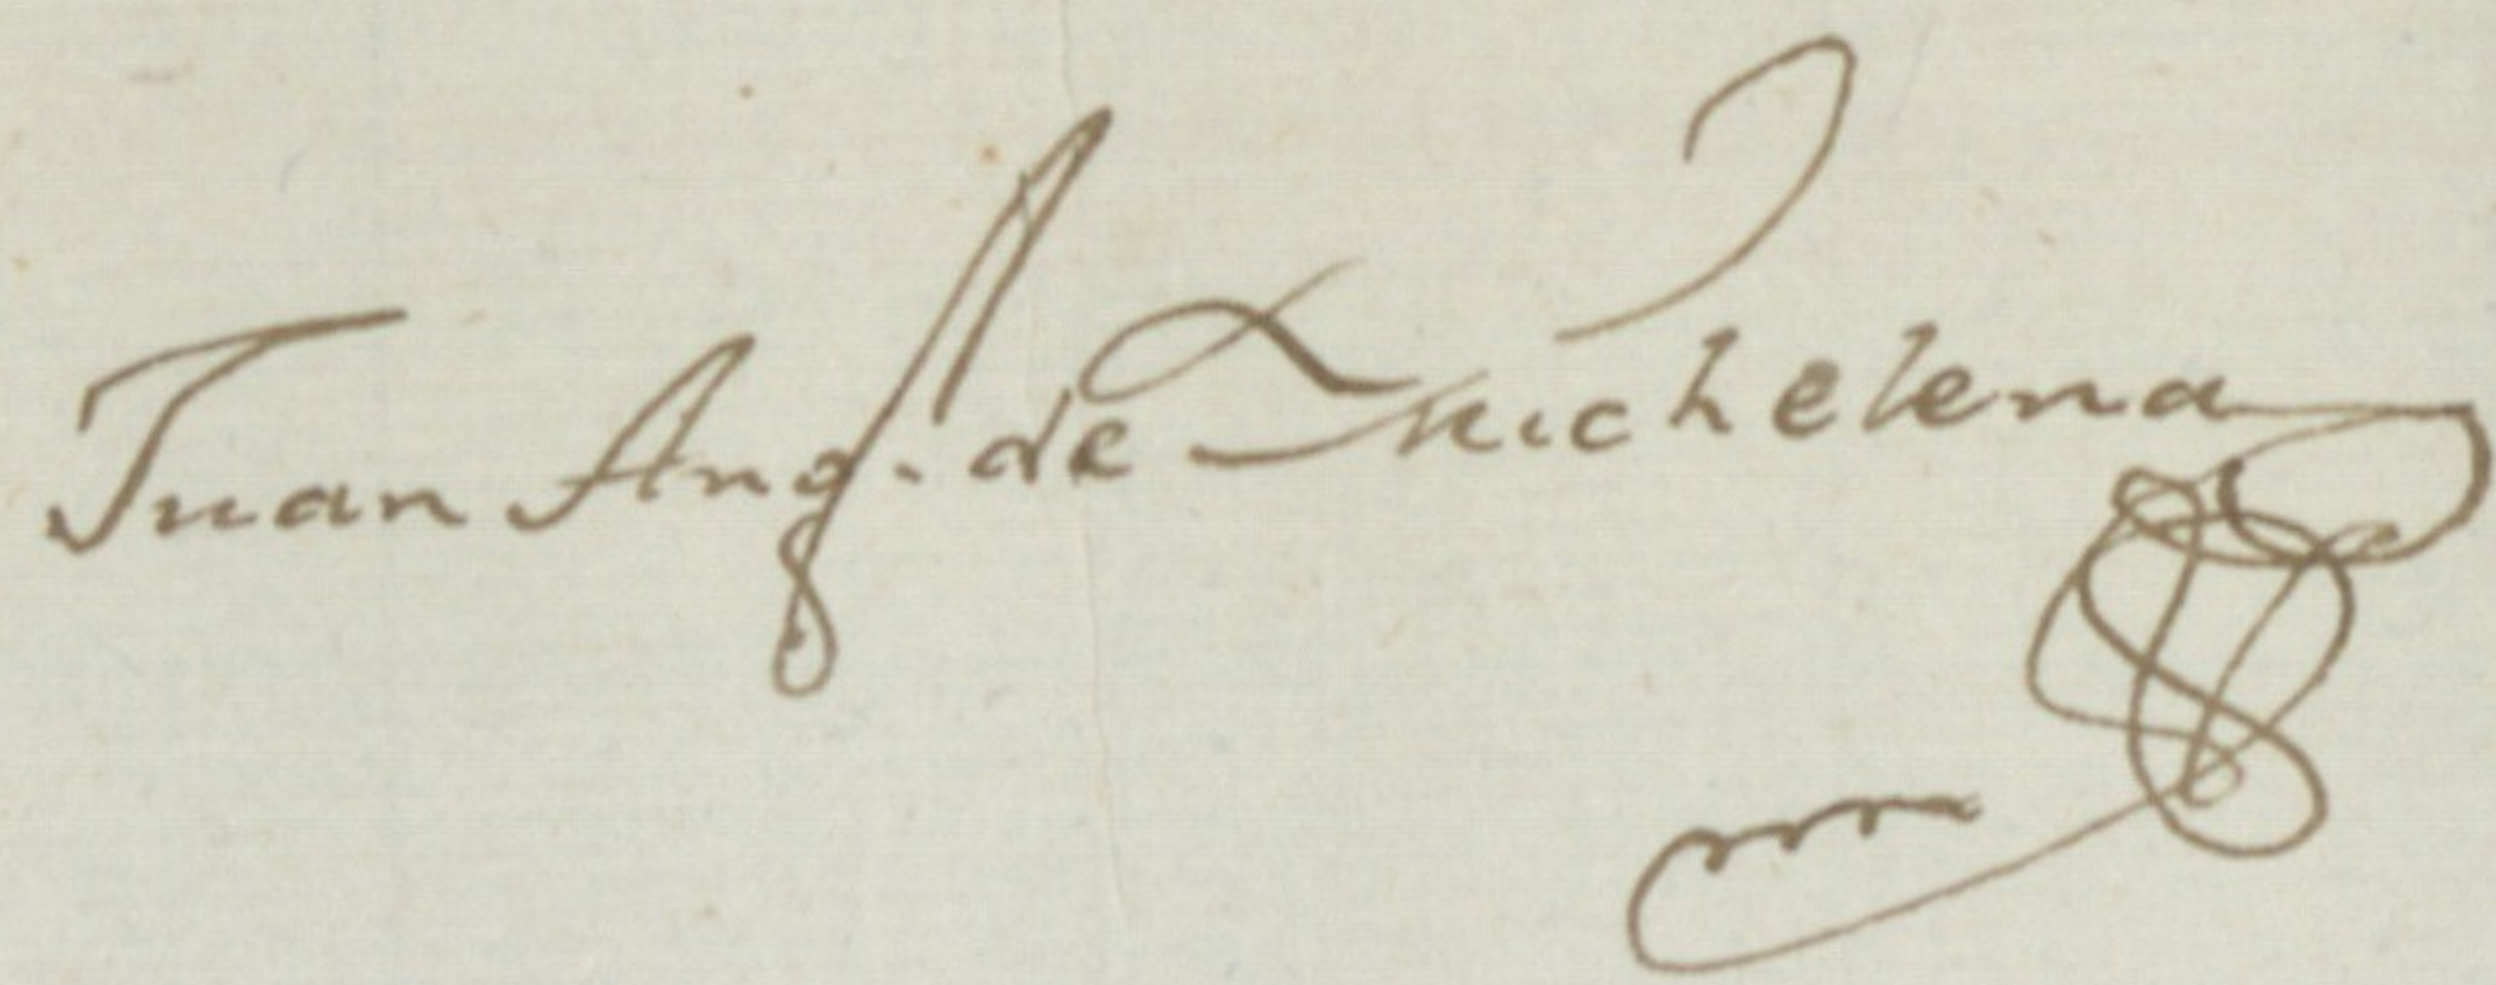 Juan Ang. de Michelena